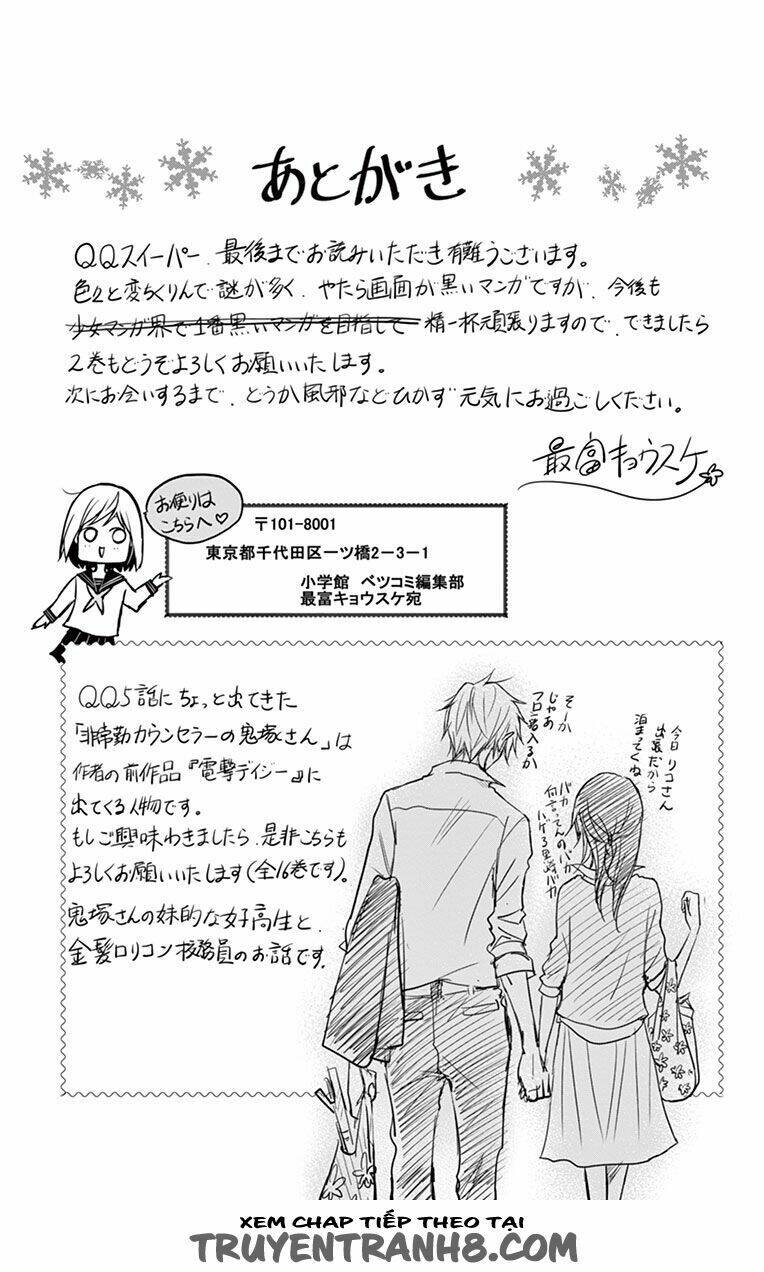 あとがき
QQスイーパー、最後までお読みいただき有難うございます。
色々と変ちくりんで謎が多く、やたら画面が黒いマンガですが、今後も
少女マンガ界で1番黒いマンガを目指して 精一杯頑張りますので、できましたら
2巻もどうぞよろしくお願いいたします。
次にお会いするまで、どうか風邪などひかず元気にお過ごしください。
最富キョウスケ
お便りは
こちらへ♡
〒101-8001
東京都千代田区一ツ橋2-3-1
小学館 ベツコミ編集部
最富キョウスケ宛
QQ5話にちょっと出てきた
「非常勤カウンセラーの鬼塚さん」は
作者の前作品『電撃デイジー』に
出てくる人物です。
もしご興味わきましたら、是非こちらも
よろしくお願いいたします(全16巻です)。
鬼塚さんの妹的な女子高生と、
金髪ロリコン校務員のお話です。
今日リコさん
出張だから
泊まってくね
そーか
じゃあ
フロ一緒入るか
バカ
何言ってんのバカ
ハゲろ黒崎バカ
XEM CHAP TIẾP THEO TẠI
TRUYENTRANH8.COM